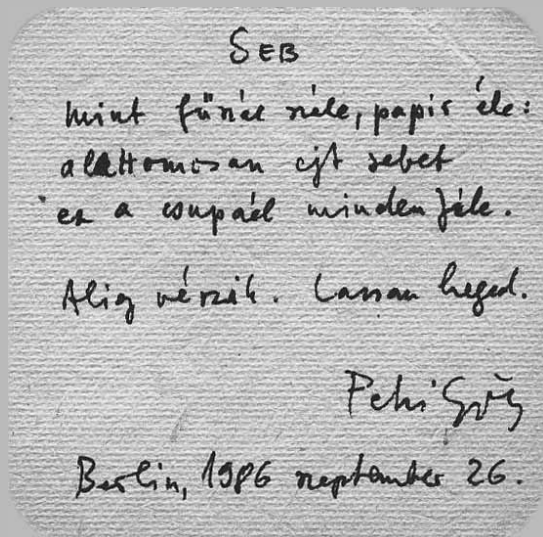 SEB
mint fűszál széle, papír éle:
alattomosan ejt sebet
ez a csupaél mindenféle.
Alig vérzik. Lassan heged.
Petri Győ
Berlin, 1986 szeptember 26.